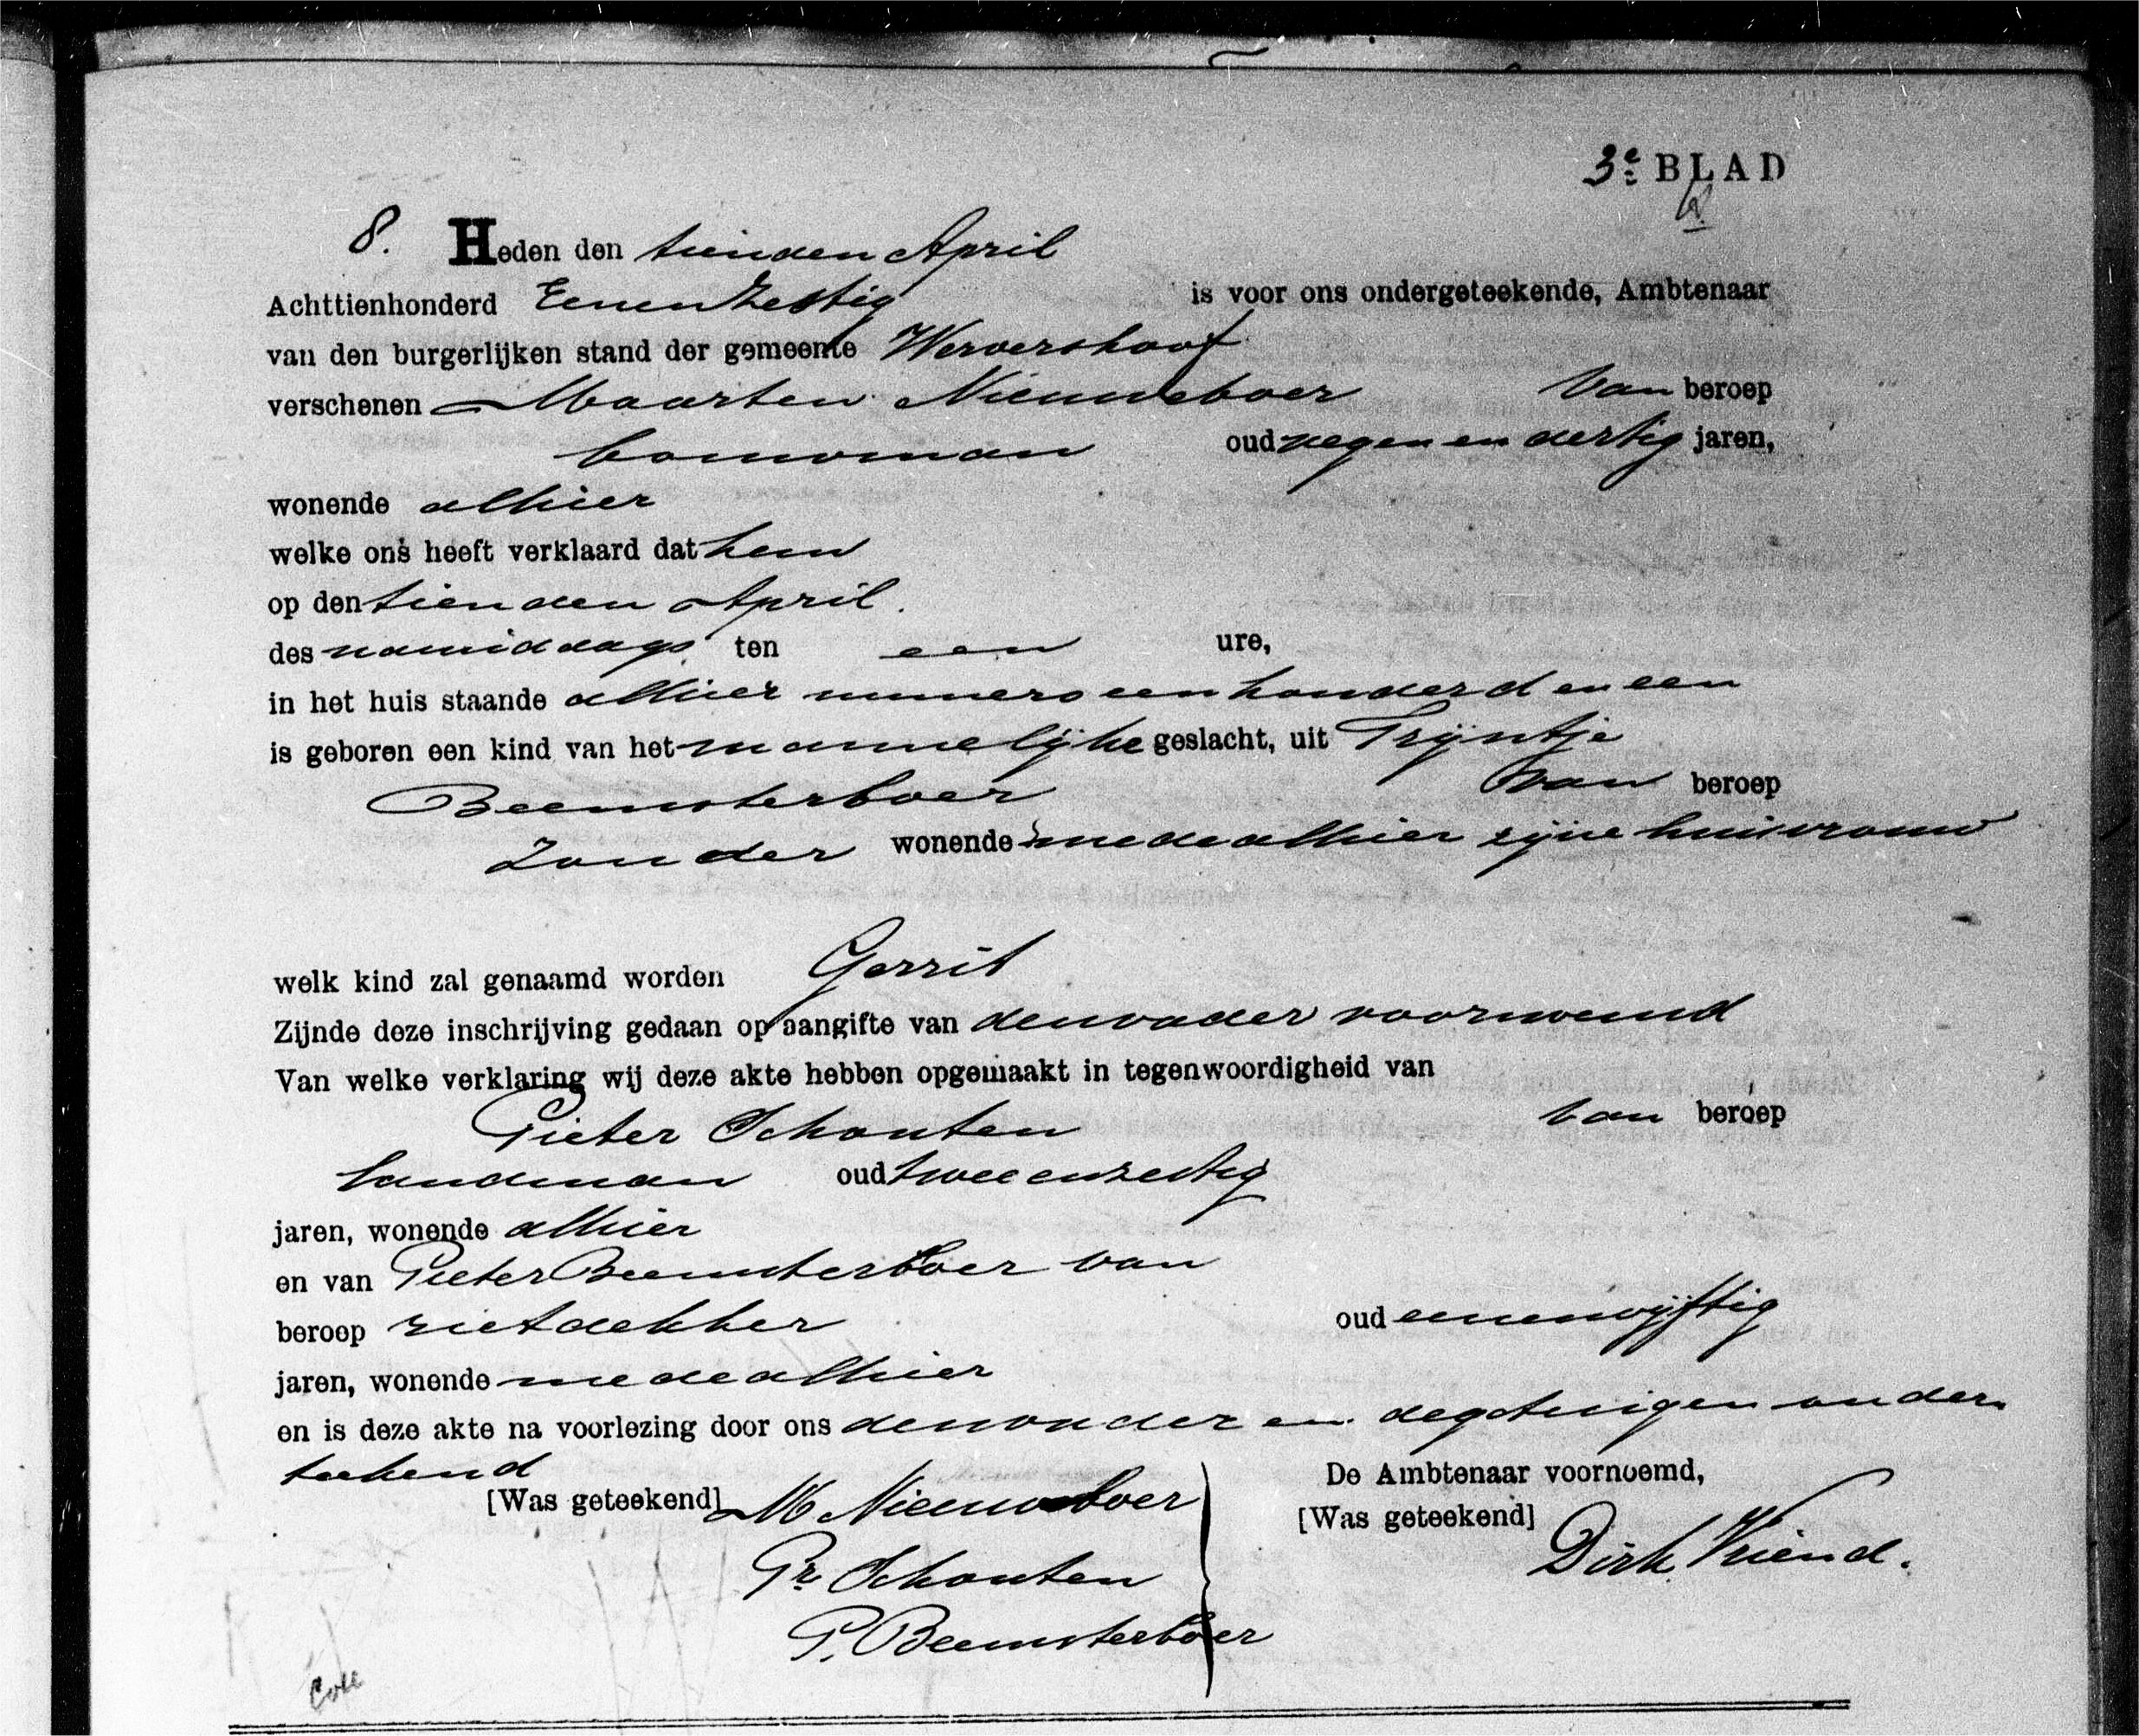 3e BLAD
8. Heden den tienden April
Achttienhonderd Eenenzestig is voor ons ondergeteekende, Ambtenaar
van den burgerlijken stand der gemeente Wervershoof
verschenen Maarten Nieuweboer van beroep
bouwman oud negen en dertig jaren,
wonende alhier
welke ons heeft verklaard dat hem
op den tienden April.
des namiddags ten een ure,
in het huis staande alhier numero een honderd en een
is geboren een kind van het mannelijke geslacht, uit Trijntje
Beemsterboer van beroep
zonder wonende mede alhier zijne huisvrouw
welk kind zal genaamd worden Gerrit
Zijnde deze inschrijving gedaan op aangifte van den vader voornoemd
Van welke verklaring wij deze akte hebben opgemaakt in tegenwoordigheid van
Pieter Schouten van beroep
landman oud twee en zestig
jaren, wonende alhier
en van Pieter Beemsterboer van
beroep rietdekker oud eenenvijftig
jaren, wonende mede alhier
en is deze akte na voorlezing door ons den vader en de getuigen onder
teekend
De Ambtenaar voornoemd,
[Was geteekend] M Nieuweboer
[Was geteekend] Dirk Vriend.
Pr Schouten
P. Beemsterboer
Coll